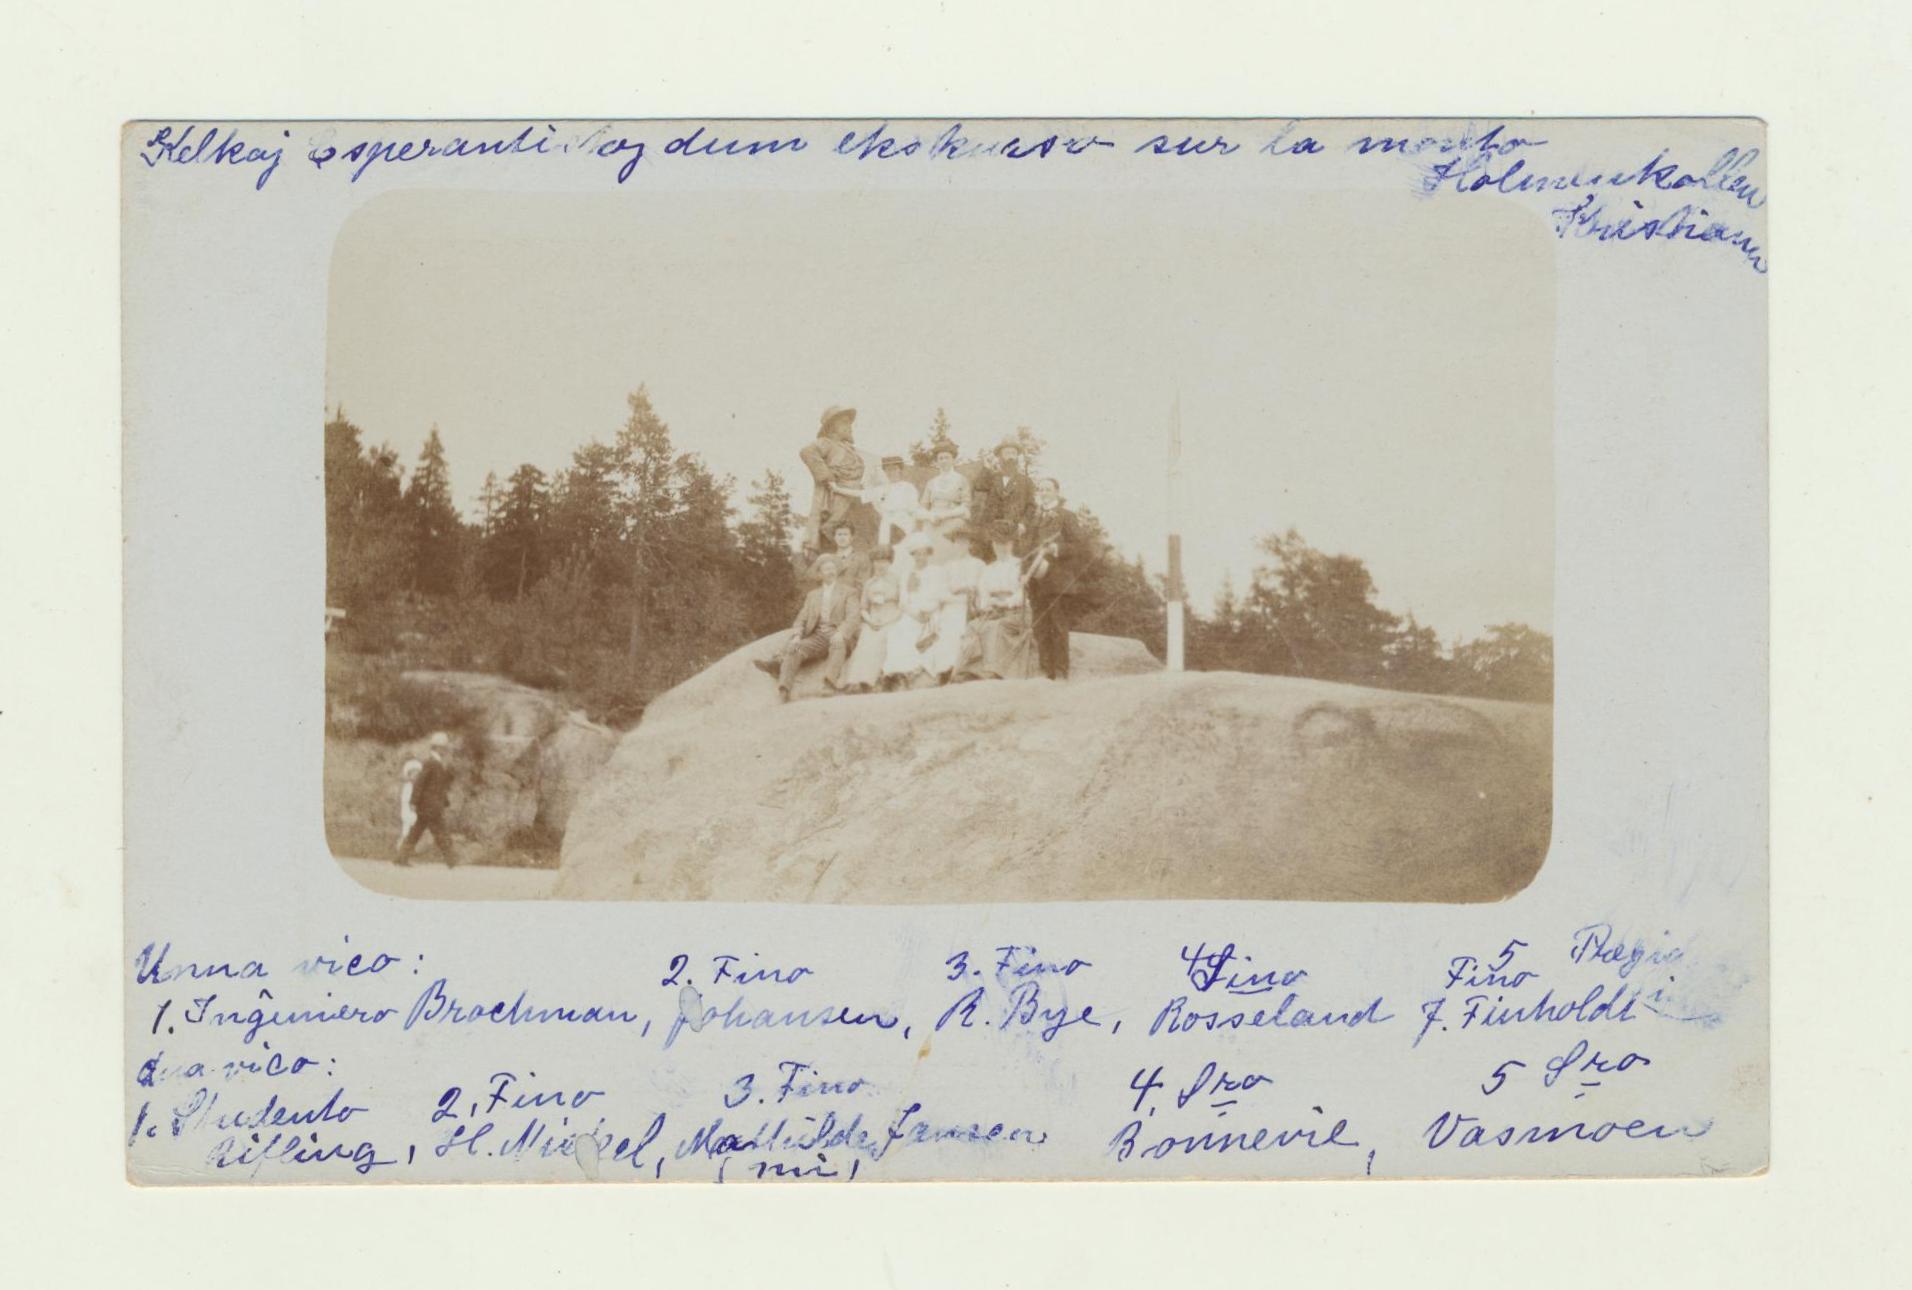 Kelkaj Esperantistoj dum ekskurso sur la monto
Holmenkollen
Kristiania
Unua vico:
1. Inĝeniero Brochman, 2. Fino Johansen, 3. Fino R. Bye, 4 Sino Rosseland 5 Fino J. Finholdt
dua vico:
1. Studento Rifling, 2. Fino H. Mickel, 3. Fino Mathilde Jansen (mi), 4. Sro Bonnevie, 5 Sro Vasmoen